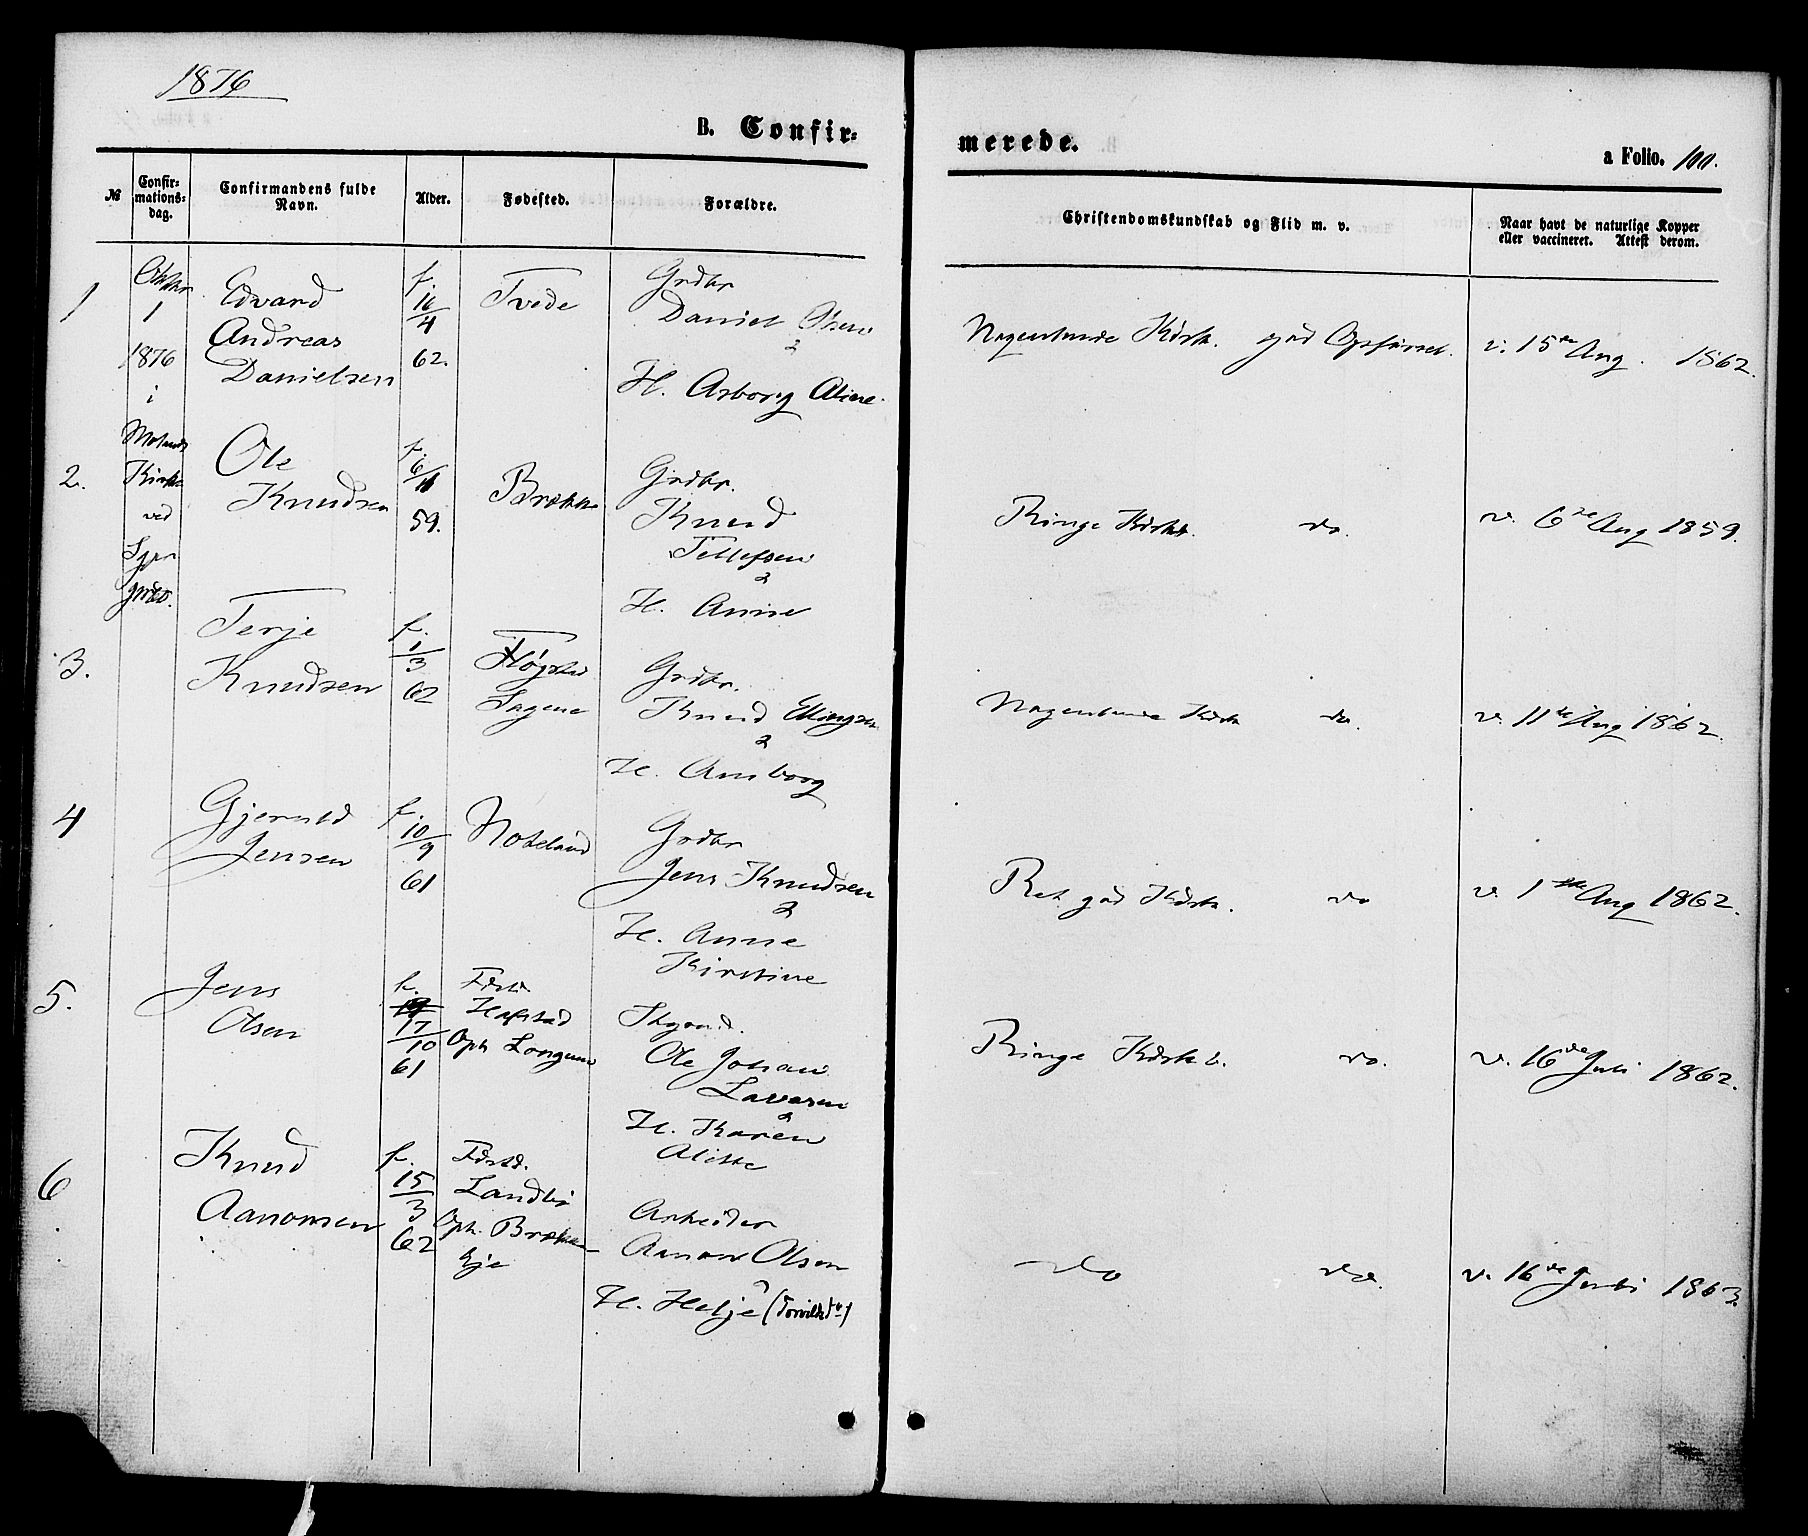 1876
B. Confir-
merede.
a Folio. 100.
№
Confir-
mations-
dag.
Confirmandens fulde
Navn.
Alder.
Fødested.
Forældre.
Christendomskundskab og Flid m. v.
Naar havt de naturlige Kopper
eller vaccineret. Attest derom.
1
Oktbr
1
1876
i
Molands
Kirke
ved
Edvard
Andreas
Danielsen
f.
16/4
62.
Tvede
Grdbr
Daniel Olsen
&
H. Asborg Aline
Nogenlunde Kdsk. god Opførsel.
v. 15de Aug. 1862.
2.
Ole
Knudsen
f.
6/11
59.
Brække
Grdbr.
Knud
Tellefsen
&
H. Anne
Ringe Kdsk. do.
v. 6te Aug 1859.
3.
Terje
Knudsen
f.
1/3
62
Fløgstad
Sagene
Grdbr.
Knud Ellingsen
&
H. Amborg
Nogenlunde Kdsk do.
v. 11te Aug 1862.
4
Gjeruld
Jensen
f.
10/9
61
Noteland
Grdbr
Jens Knudsen
&
H. Anne
Kirstine
Ret god Kdsk. do
v. 1ste Aug 1862.
5.
Jens
Olsen
f.
17/10
61
Fdstd.
Hafstad
Oph Longum
Ole Johan
Lavasen
&
H. Karen
Aliette
Ringe Kdsk. do.
v. 16de Juli 1862.
6
Knud
Aanonsen
f.
15/3
62
Fdstd.
Landvig
Oph. Brække-
eje
Arbeider
Aanon Olsen
H. Helje (Torvildsdtr)
do do.
v. 16de Juli 1863.